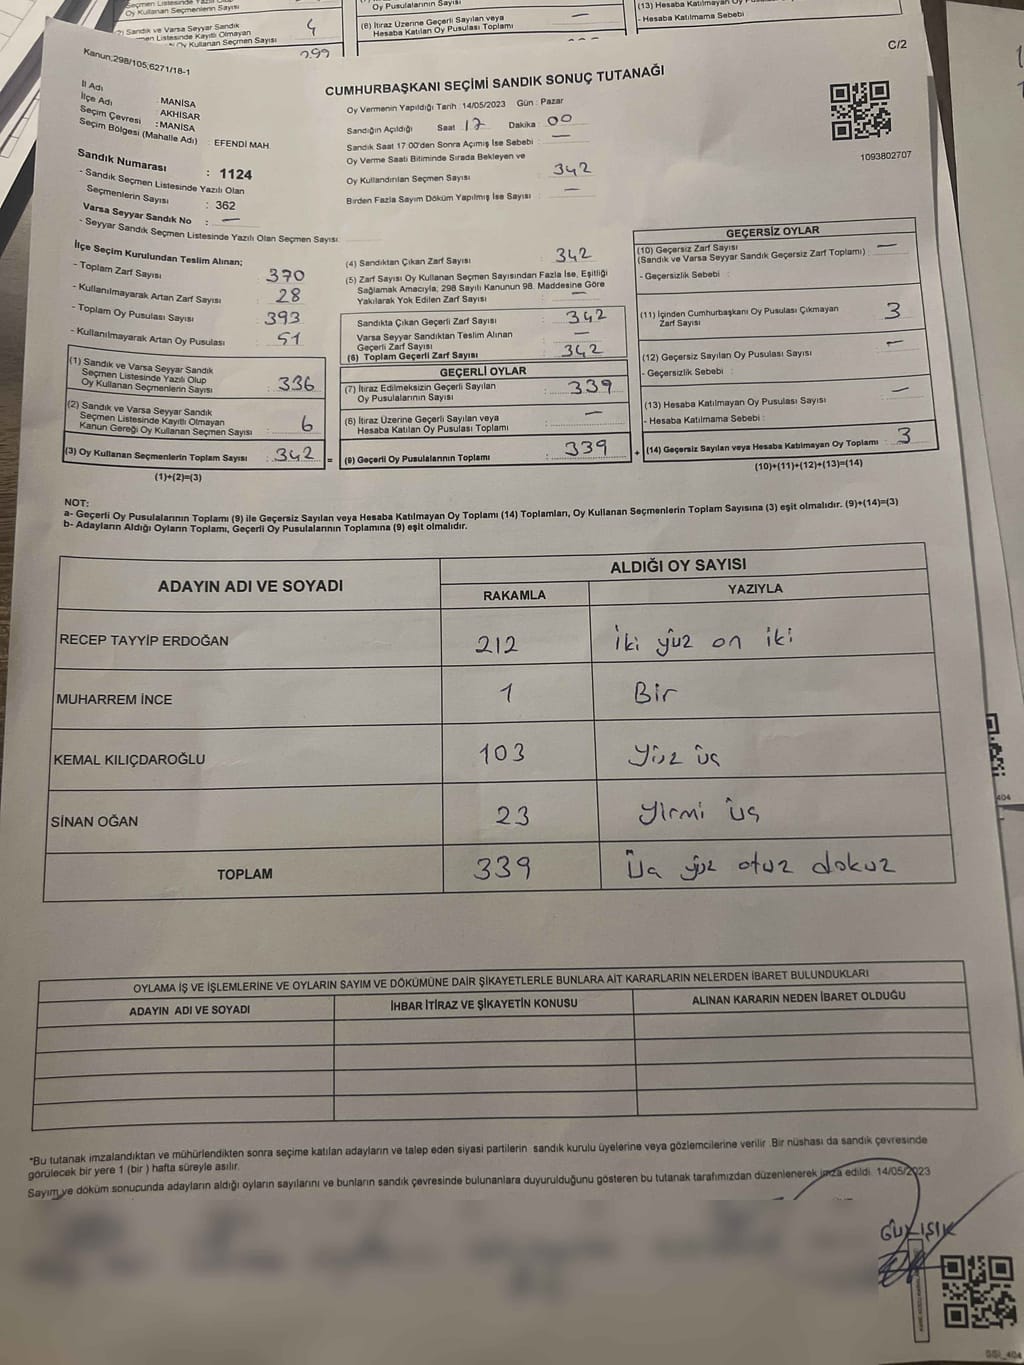 Seçmen Listesinde Yazılı Olup
Oy Kullanan Seçmenlerin Sayısı
(2) Sandık ve Varsa Seyyar Sandık
Seçmen Listesinde Kayıtlı Olmayan
Oy Kullanan Seçmen Sayısı
4
299
Oy Pusulasının Sayısı
(8) İtiraz Üzerine Geçerli Sayılan veya
Hesaba Katılan Oy Pusulası Toplamı
—
(13) Hesaba Katılmayan Oy
- Hesaba Katılmama Sebebi
Kanun;298/105;6271/18-1
C/2
CUMHURBAŞKANI SEÇİMİ SANDIK SONUÇ TUTANAĞI
İl Adı : MANİSA
İlçe Adı : AKHİSAR
Seçim Çevresi : MANİSA
Seçim Bölgesi (Mahalle Adı) : EFENDİ MAH
Sandık Numarası : 1124
- Sandık Seçmen Listesinde Yazılı Olan
Seçmenlerin Sayısı : 362
Varsa Seyyar Sandık No : —
- Seyyar Sandık Seçmen Listesinde Yazılı Olan Seçmen Sayısı
Oy Vermenin Yapıldığı Tarih : 14/05/2023 Gün : Pazar
Sandığın Açıldığı Saat 17 Dakika : 00
Sandık Saat 17:00'den Sonra Açımış İse Sebebi : —
Oy Verme Saati Bitiminde Sırada Bekleyen ve
Oy Kullandırılan Seçmen Sayısı : 342
Birden Fazla Sayım Döküm Yapılmış İse Sayısı : —
1093802707
İlçe Seçim Kurulundan Teslim Alınan;
- Toplam Zarf Sayısı : 370
- Kullanılmayarak Artan Zarf Sayısı : 28
- Toplam Oy Pusulası Sayısı : 393
- Kullanılmayarak Artan Oy Pusulası : 51
(1) Sandık ve Varsa Seyyar Sandık
Seçmen Listesinde Yazılı Olup
Oy Kullanan Seçmenlerin Sayısı : 336
(2) Sandık ve Varsa Seyyar Sandık
Seçmen Listesinde Kayıtlı Olmayan
Kanun Gereği Oy Kullanan Seçmen Sayısı : 6
(3) Oy Kullanan Seçmenlerin Toplam Sayısı : 342 =
(1)+(2)=(3)
(4) Sandıktan Çıkan Zarf Sayısı : 342
(5) Zarf Sayısı Oy Kullanan Seçmen Sayısından Fazla İse, Eşitliği
Sağlamak Amacıyla, 298 Sayılı Kanunun 98. Maddesine Göre
Yakılarak Yok Edilen Zarf Sayısı : —
Sandıkta Çıkan Geçerli Zarf Sayısı : 342
Varsa Seyyar Sandıktan Teslim Alınan
Geçerli Zarf Sayısı : —
(6) Toplam Geçerli Zarf Sayısı : 342
GEÇERLİ OYLAR
(7) İtiraz Edilmeksizin Geçerli Sayılan
Oy Pusulasının Sayısı : 339
(8) İtiraz Üzerine Geçerli Sayılan veya
Hesaba Katılan Oy Pusulası Toplamı : —
(9) Geçerli Oy Pusulalarının Toplamı : 339 +
GEÇERSİZ OYLAR
(10) Geçersiz Zarf Sayısı —
(Sandık ve Varsa Seyyar Sandık Geçersiz Zarf Toplamı) :
- Geçersizlik Sebebi :
(11) İçinden Cumhurbaşkanı Oy Pusulası Çıkmayan
Zarf Sayısı 3
(12) Geçersiz Sayılan Oy Pusulası Sayısı —
- Geçersizlik Sebebi :
(13) Hesaba Katılmayan Oy Pusulası Sayısı : —
- Hesaba Katılmama Sebebi :
(14) Geçersiz Sayılan veya Hesaba Katılmayan Oy Toplamı : 3
(10)+(11)+(12)+(13)=(14)
NOT:
a- Geçerli Oy Pusulalarının Toplamı (9) ile Geçersiz Sayılan veya Hesaba Katılmayan Oy Toplamı (14) Toplamları, Oy Kullanan Seçmenlerin Toplam Sayısına (3) eşit olmalıdır. (9)+(14)=(3)
b- Adayların Aldığı Oyların Toplamı, Geçerli Oy Pusulalarının Toplamına (9) eşit olmalıdır.
ADAYIN ADI VE SOYADI ALDIĞI OY SAYISI
RAKAMLA YAZIYLA
RECEP TAYYİP ERDOĞAN 212 İki yüz on iki
MUHARREM İNCE 1 Bir
KEMAL KILIÇDAROĞLU 103 Yüz üç
SİNAN OĞAN 23 yirmi üç
TOPLAM 339 Üç yüz otuz dokuz
OYLAMA İŞ VE İŞLEMLERİNE VE OYLARIN SAYIM VE DÖKÜMÜNE DAİR ŞİKAYETLERLE BUNLARA AİT KARARLARIN NELERDEN İBARET BULUNDUKLARI
ADAYIN ADI VE SOYADI İHBAR İTİRAZ VE ŞİKAYETİN KONUSU ALINAN KARARIN NEDEN İBARET OLDUĞU
*Bu tutanak imzalandıktan ve mühürlendikten sonra seçime katılan adayların ve talep eden siyasi partilerin sandık kurulu üyelerine veya gözlemcilerine verilir .Bir nüshası da sandık çevresinde
görülecek bir yere 1 (bir ) hafta süreyle asılır.
Sayım ve döküm sonucunda adayların aldığı oyların sayılarını ve bunların sandık çevresinde bulunanlara duyurulduğunu gösteren bu tutanak tarafımızdan düzenlenerek imza edildi. 14/05/2023
IŞIK
SSI_404
404